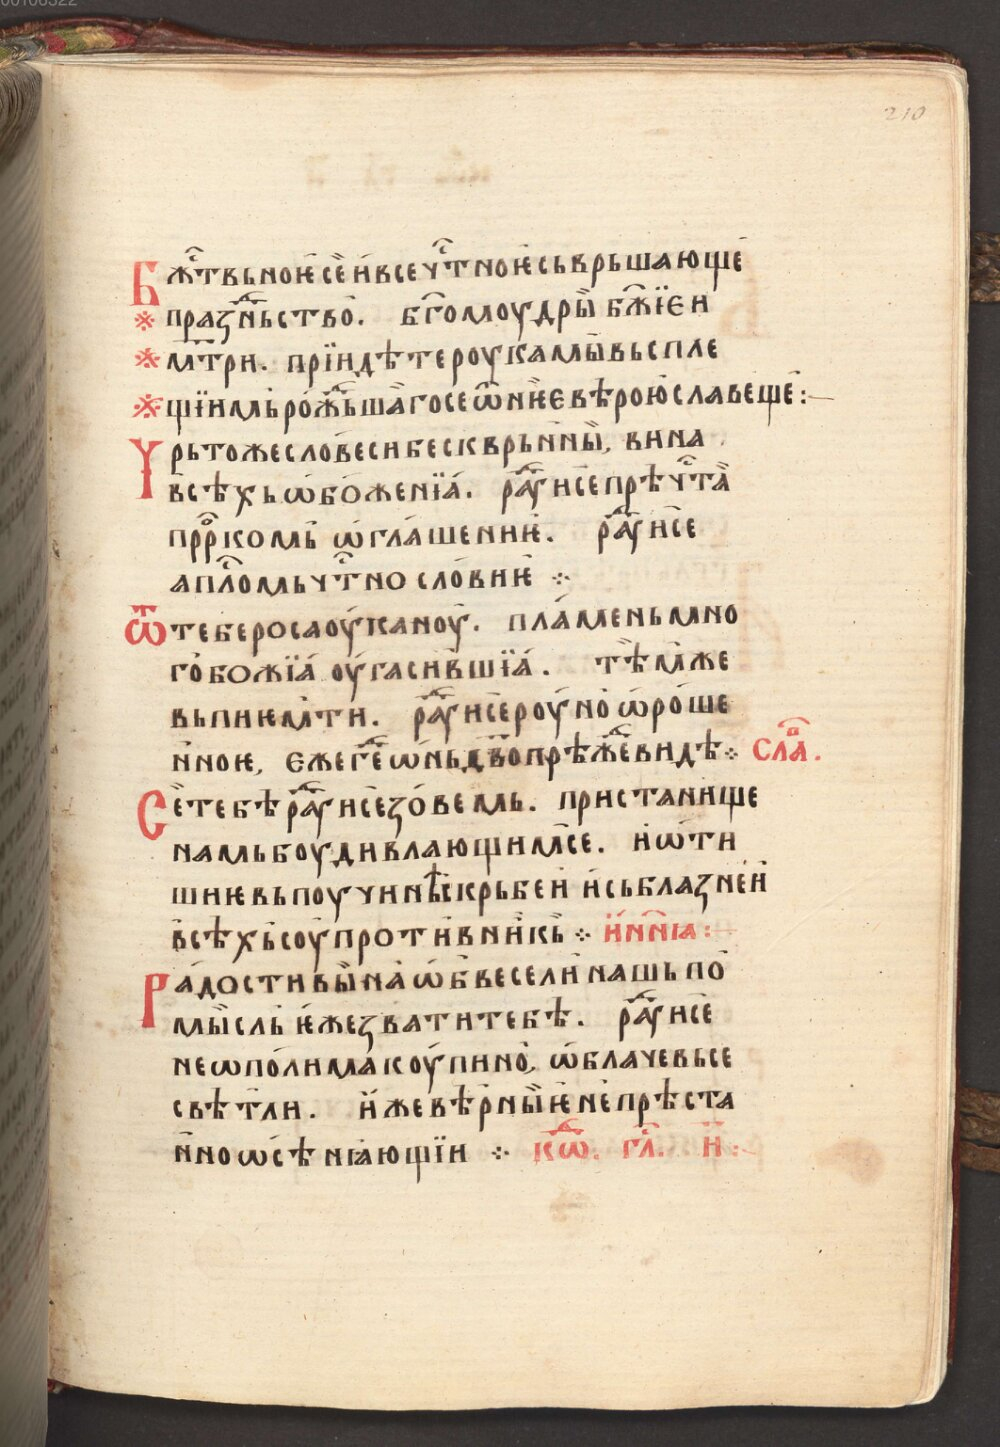 210
Бжⷭ҇твьноѥ се́ и҆ всеч҇тⷭноѥ сьврьшающе
праⷥньство̀. бг҃омоудры̏ бж҃їѥи
мт҃ри. прїидѣте роукамы̏ вьспле
щїимь рож҃ьша̏го се ѿ нѥѥ вѣрою славеще:
Урьтоже словеси бесквры́нны̏, вина
всѣхь ѡ҆боженїа́. раⷣуисе прѣчⷭта̏
прⷪркомь ѡ҆глашениѥ. раⷣуи се
апⷭломь чⷭтно сло́виѥ ⁘
Ѿ тебе роса оу҆кану. пла́мень мно
гобожїа́ оу҆гаси́вшїа́. тѣ́мже
вьпиѥм ти. раⷣуисе роуно̀ ѡ҆ро́ше
нноѥ, ѥже геⷣѡнь дв҃о прѣжⷣе видѣ⁘ Слаⷡ.
Се̏ тебѣ раⷣуисе зовемь. пристанище
намь боуди влающимсе. и҆ ѡ҆ти
шиѥ вь поучинѣ скрьбеи и҆ сьблазнеи
всѣхь соупроти́вникь ⁘ и҆ нн҃ꙗ:
Радости вы̏на ѡ҆бвесели нашь по
мы́сль ѥ҆же звати тебѣ. раⷣуи се
неѡпо́лимаꙗ коупино, ѡ҆блаче вьсе
свѣтли. и҆же вѣрныѥ непрѣста
нно ѡсѣнꙗющїи ⁘ кѡⷣ. гл҃. и҃: